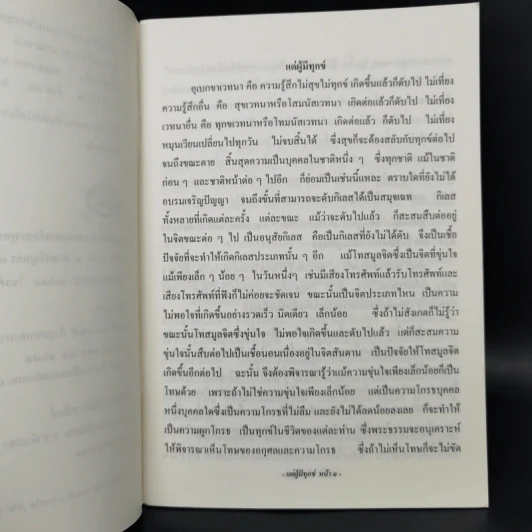 แด่ผู้มีทุกข์
อุเบกขาเวทนา คือ ความรู้สึกไม่สุขไม่ทุกข์ เกิดขึ้นแล้วก็ดับไป ไม่เที่ยง
ความรู้สึกอื่น คือ สุขเวทนาหรือโสมนัสเวทนา เกิดต่อแล้วก็ดับไป ไม่เที่ยง
เวทนาอื่น คือ ทุกขเวทนาหรือโทมนัสเวทนา เกิดต่อ แล้ว ก็ดับไป ไม่เที่ยง
หมุนเวียนเปลี่ยนไปทุกวัน ไม่จบสิ้นได้ ซึ่งสุขก็จะต้องสลับกับทุกข์ต่อไป
จนถึงขณะตาย สิ้นสุดความเป็นบุคคลในชาติหนึ่ง ๆ ซึ่งทุกชาติ แม้ในชาติ
ก่อน ๆ และชาติหน้าต่อ ๆ ไปอีก ก็ย่อมเป็นเช่นนี้แหละ ตราบใดที่ยังไม่ได้
อบรมเจริญปัญญา จนถึงขั้นที่สามารถจะดับกิเลสได้เป็นสมุจเฉท กิเลส
ทั้งหลายที่เกิดแต่ละครั้ง แต่ละขณะ แม้ว่าจะดับไปแล้ว ก็สะสมสืบต่ออยู่
ในจิตขณะต่อ ๆ ไป เป็นอนุสัยกิเลส คือเป็นกิเลสที่ยังไม่ได้ดับ จึงเป็นเชื้อ
ปัจจัยที่จะทำให้เกิดกิเลสประเภทนั้น ๆ อีก แม้โทสมูลจิตซึ่งเป็นจิตที่ขุ่นใจ
แม้เพียงเล็ก ๆ น้อย ๆ ในวันหนึ่งๆ เช่นมีเสียงโทรศัพท์แล้วรับโทรศัพท์และ
เสียงโทรศัพท์ที่ฟังก็ไม่ค่อยจะชัดเจน ขณะนั้นเป็นจิตประเภทไหน เป็นความ
ไม่พอใจที่เกิดขึ้นอย่างรวดเร็ว นิดเดียว เล็กน้อย ซึ่งถ้าไม่สังเกตก็ไม่รู้ว่า
ขณะนั้นโทสมูลจิตซึ่งขุ่นใจ ไม่พอใจเกิดขึ้นและดับไปแล้ว แต่ก็สะสมความ
ขุ่นใจนั้นสืบต่อไปเป็นเชื้อนอนเนื่องอยู่ในจิตสันดาน เป็นปัจจัยให้โทสมูลจิต
เกิดขึ้นอีกต่อไป ฉะนั้น จึงต้องพิจารณารู้ว่าแม้ความขุ่นใจเพียงเล็กน้อยก็เป็น
โทษด้วย เพราะถ้าไม่ใช่ความขุ่นใจเพียงเล็กน้อย แต่เป็นความโกรธบุคคล
หนึ่งบุคคลใดซึ่งเป็นความโกรธที่ไม่ลืม และยังไม่ได้ลดน้อยลงเลย ก็จะทำให้
เป็นความผูกโกรธ เป็นทุกข์ในชีวิตของแต่ละท่าน ซึ่งพระธรรมจะอนุเคราะห์
ให้พิจารณาเห็นโทษของอกุศลและความโกรธ ซึ่งถ้าไม่เห็นโทษก็จะไม่ขัด
- แด่ผู้มีทุกข์ หน้า ๑ -